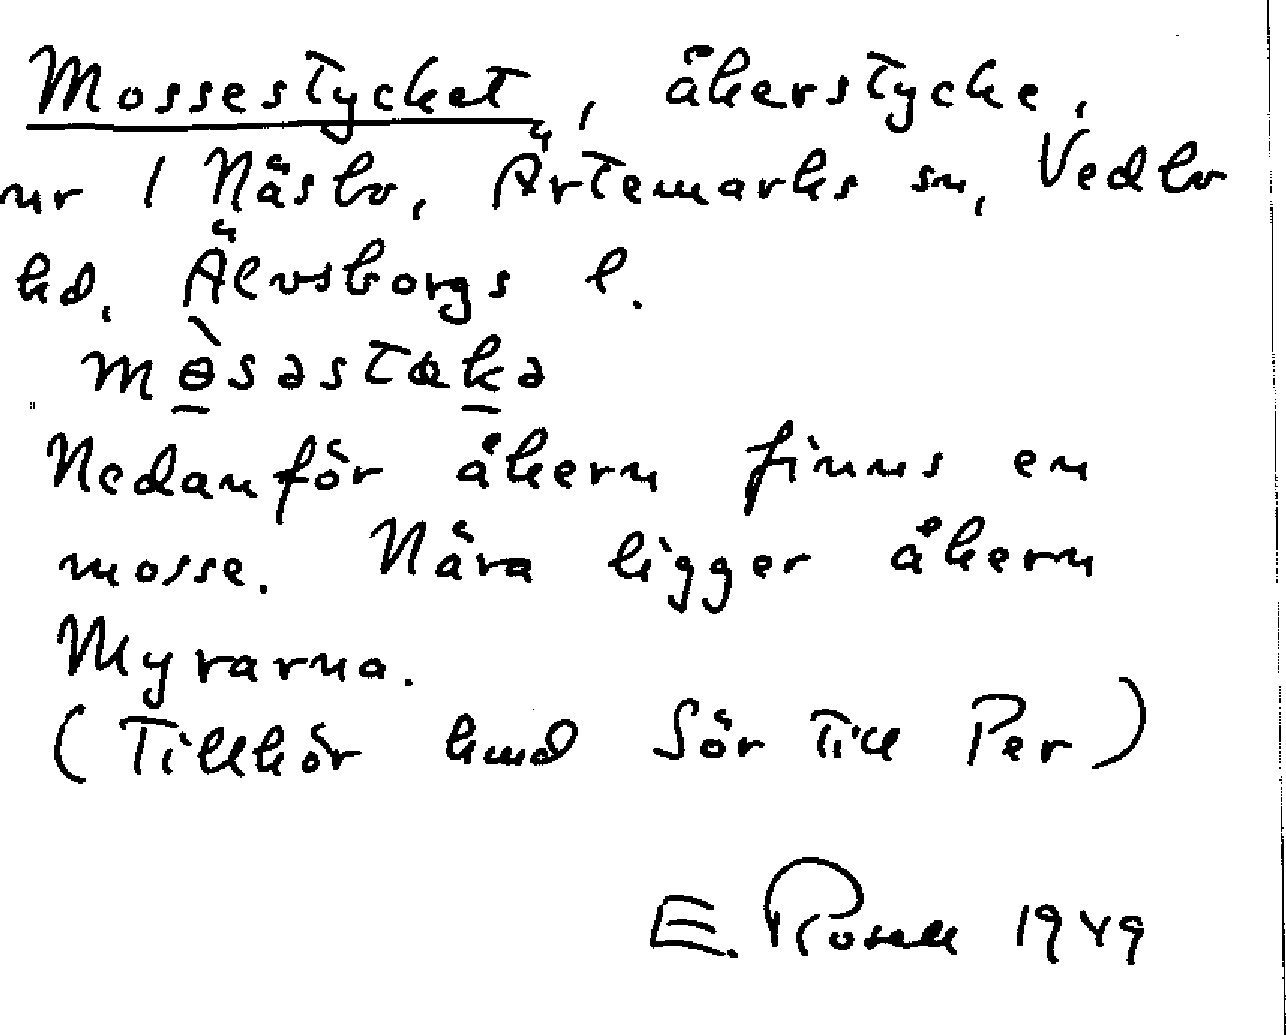 Mossestycket, åkerstycke,
nr 1 Näsbo, Ärtemarks sn, Vedbo
hd, Älvsborgs l.
mɵ̀səstɵkə
Nedanför åkern finns en
mosse. Nära ligger åkern
Myrarna.
(Tillhör hmd Sör till Per)
E. Rosell 1949